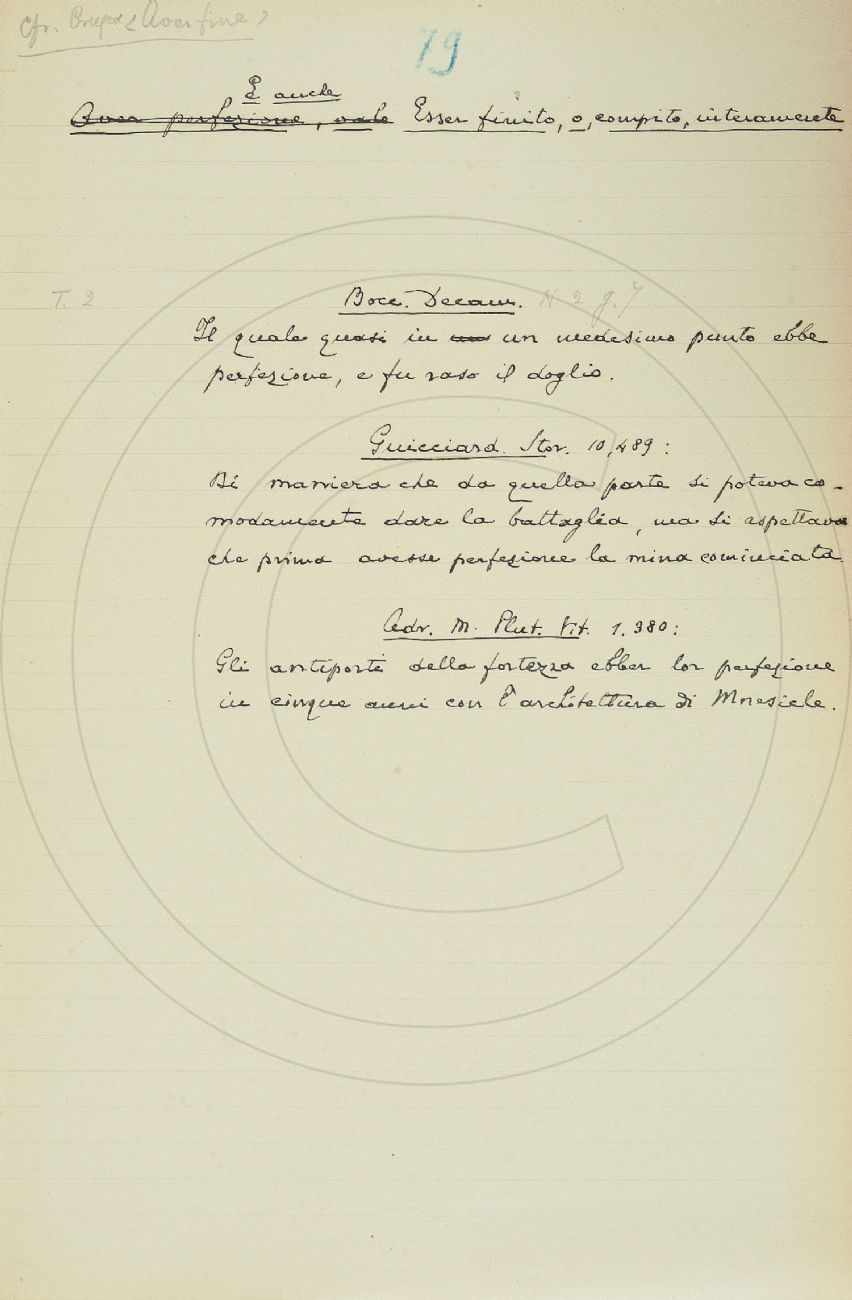 Cfr. < Aver fine >
79
E anche
Aver perfezione, vale Esser finito, o, compito, interamente
T. 2 Bocc. Decam. N 2 g. 7
Il quale quasi in un medesimo punto ebbe
perfezione, e fu raso il doglio.
Guicciard. Stor. 10,489:
Di maniera che da quella parte si poteva co-
modamente dare la battaglia, ma si aspettava
che prima avesse perfezione la mina cominciata.
Adr. M. Plut. Vit. 1. 380:
Gli antiporti della fortezza ebber lor perfezione
in cinque anni con l'architettura di Mnesicle.